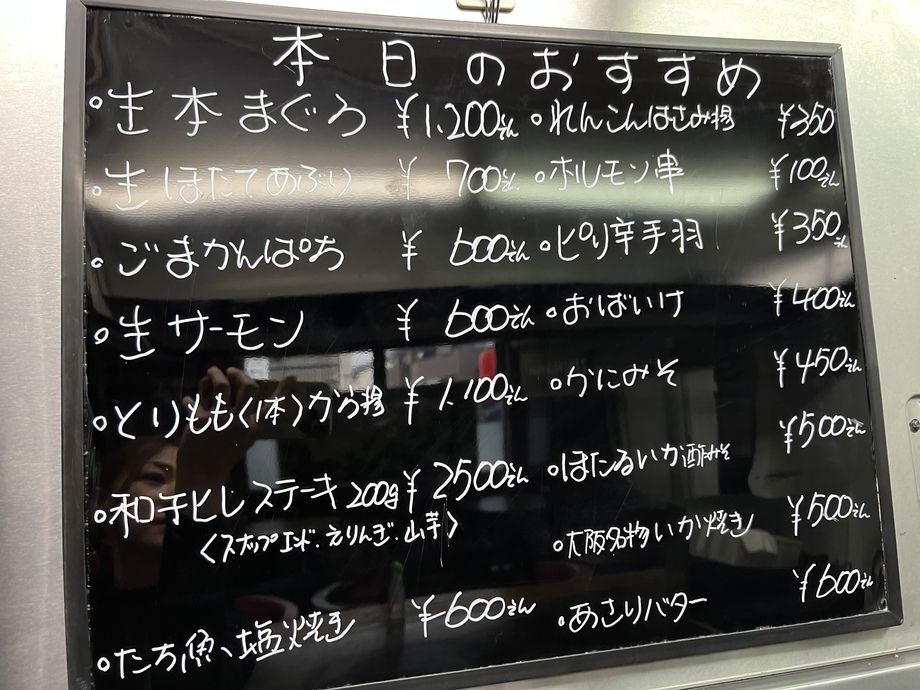 本日のおすすめ
。生本まぐろ ¥1,200せん
。生ほたてあぶり ¥700せん
。ごまかんぱち ¥600せん
。生サーモン ¥600せん
。とりもも〈1本〉から揚 ¥1,100せん
。和牛ヒレステーキ200g ¥2500せん
〈スナップエンド、えりんぎ、山芋〉
。たち魚、塩焼き ¥600せん
。れんこんはさみ揚 ¥350
。ホルモン串 ¥100せん
。ピリ辛手羽 ¥350せん
。おばいけ ¥400せん
。かにみそ ¥450せん
。ほたるいか酢みそ ¥500せん
。大阪名物いか焼き ¥500せん
。あさりバター ¥600せん